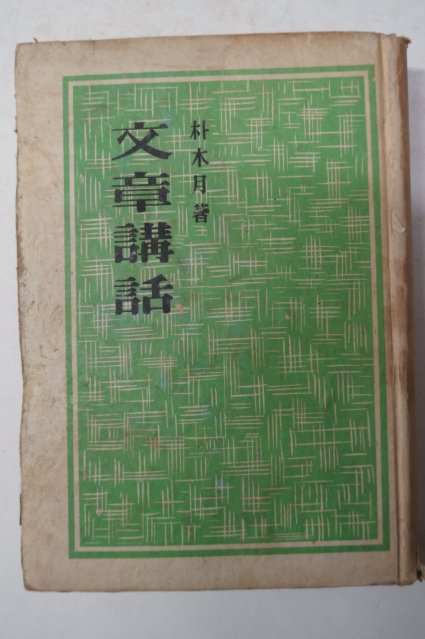 朴木月著
文章講話